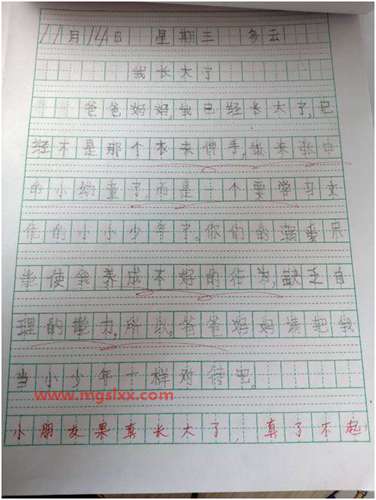 11月14日 星期三 多云
我长大了
爸爸妈妈,我已经长大了,已
经不是那个衣来伸手,饭来张口
的小孩童了而是一个要学习文
化的小小少年了。你们的溺爱只
会使我养成不好的行为,缺乏自
理的能力,所以,爸爸妈妈请把我
当小少年一样对待吧。
www.mgslxx.com
小朋友果真长大了,真了不起